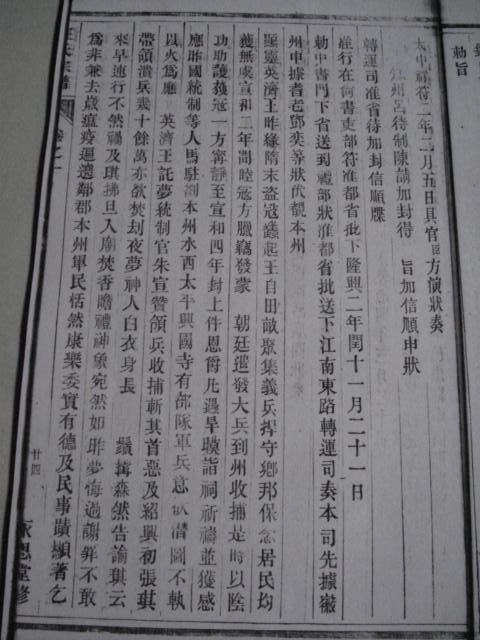 勅旨
大中祥符二年二月五日具官臣方演狀奏
州呂待制陳請加封得　旨加信順申狀
轉運司准省符加封信順牒
准行在尚書吏部符准都省批下隆興二年閏十一月二十一日
勅中書門下省送到禮部狀准都省批送下江南東路轉運司奏本司先據徽
州申據耆老鄧奕等狀伏覩本州
顯靈英濟王昨緣隋末盜寇蠭起王自田畝聚集義兵捍守鄉邦保念居民均
獲無虞宣和二年間睦寇方臘竊發蒙　朝廷遣發大兵到州收捕是時以陰
功助護獲冠一方甯靜至宣和四年封上件恩爵凡遇旱暵詣祠祈禱並獲感
應昨國統制等人馬駐劄本州水西太平興國寺有部隊軍兵意欲潛圖不軌
以火爲應　英濟王託夢統制官朱宣贊領兵收捕斬其首惡及紹興初張琪
帶領潰兵幾十餘萬亦欲焚刦夜夢神人白衣身長　鬚髯森然告諭琪云
來早速行不然禍及琪拂旦入廟焚香瞻禮神象宛然如昨夢悔過謝罪不敢
爲非兼去歲瘟疫逼近鄰郡本州軍民恬然康樂委實有德及民事蹟顯著乞
汪氏宗譜
卷之一
廿四
承恩堂修